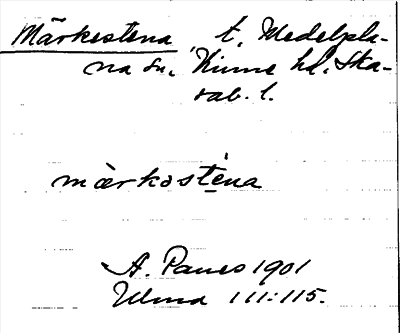 Märkestena, t. Medelpla-
na sn, Kinne hd. Ska-
rab. l.
mærkostena
A. Panes 1901
Ulma 111:115.